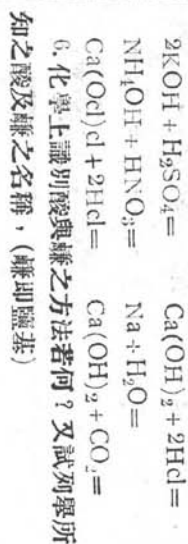 2KOH + H₂SO₄=    Ca(OH)₂ + 2Hcl=
NH₄OH + HNO₃=    Na + H₂O=
Ca(Ocl)cl + 2Hcl=    Ca(OH)₂ + CO₂=
6. 化學上識別酸與鹻之方法若何？又試列舉所
知之酸及鹻之名稱，(鹻即鹽基)